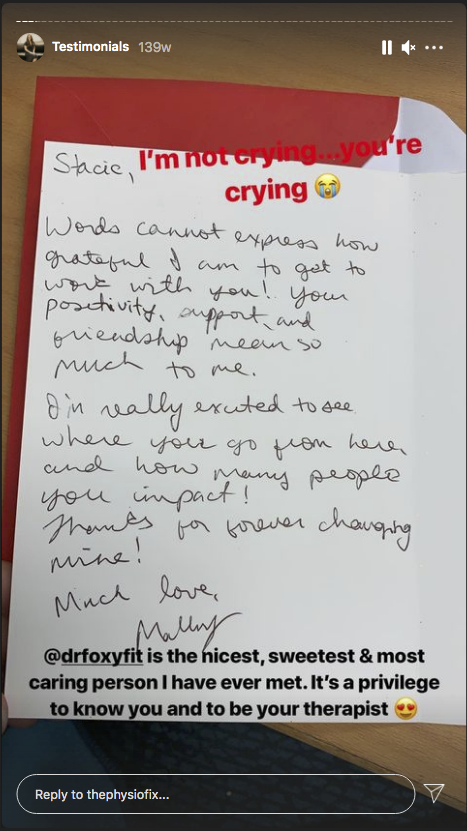 Testimonials 139w
I'm not crying...you're
crying 😭
Stacie,
Words cannot express how
grateful I am to get to
work with you! Your
positivity, support, and
friendship mean so
much to me.
I'm really excited to see
where you go from here,
and how many people
you impact!
Thanks for forever changing
mine!
Much love,
Mallory
@drfoxyfit is the nicest, sweetest & most
caring person I have ever met. It's a privilege
to know you and to be your therapist 😍
Reply to thephysiofix...